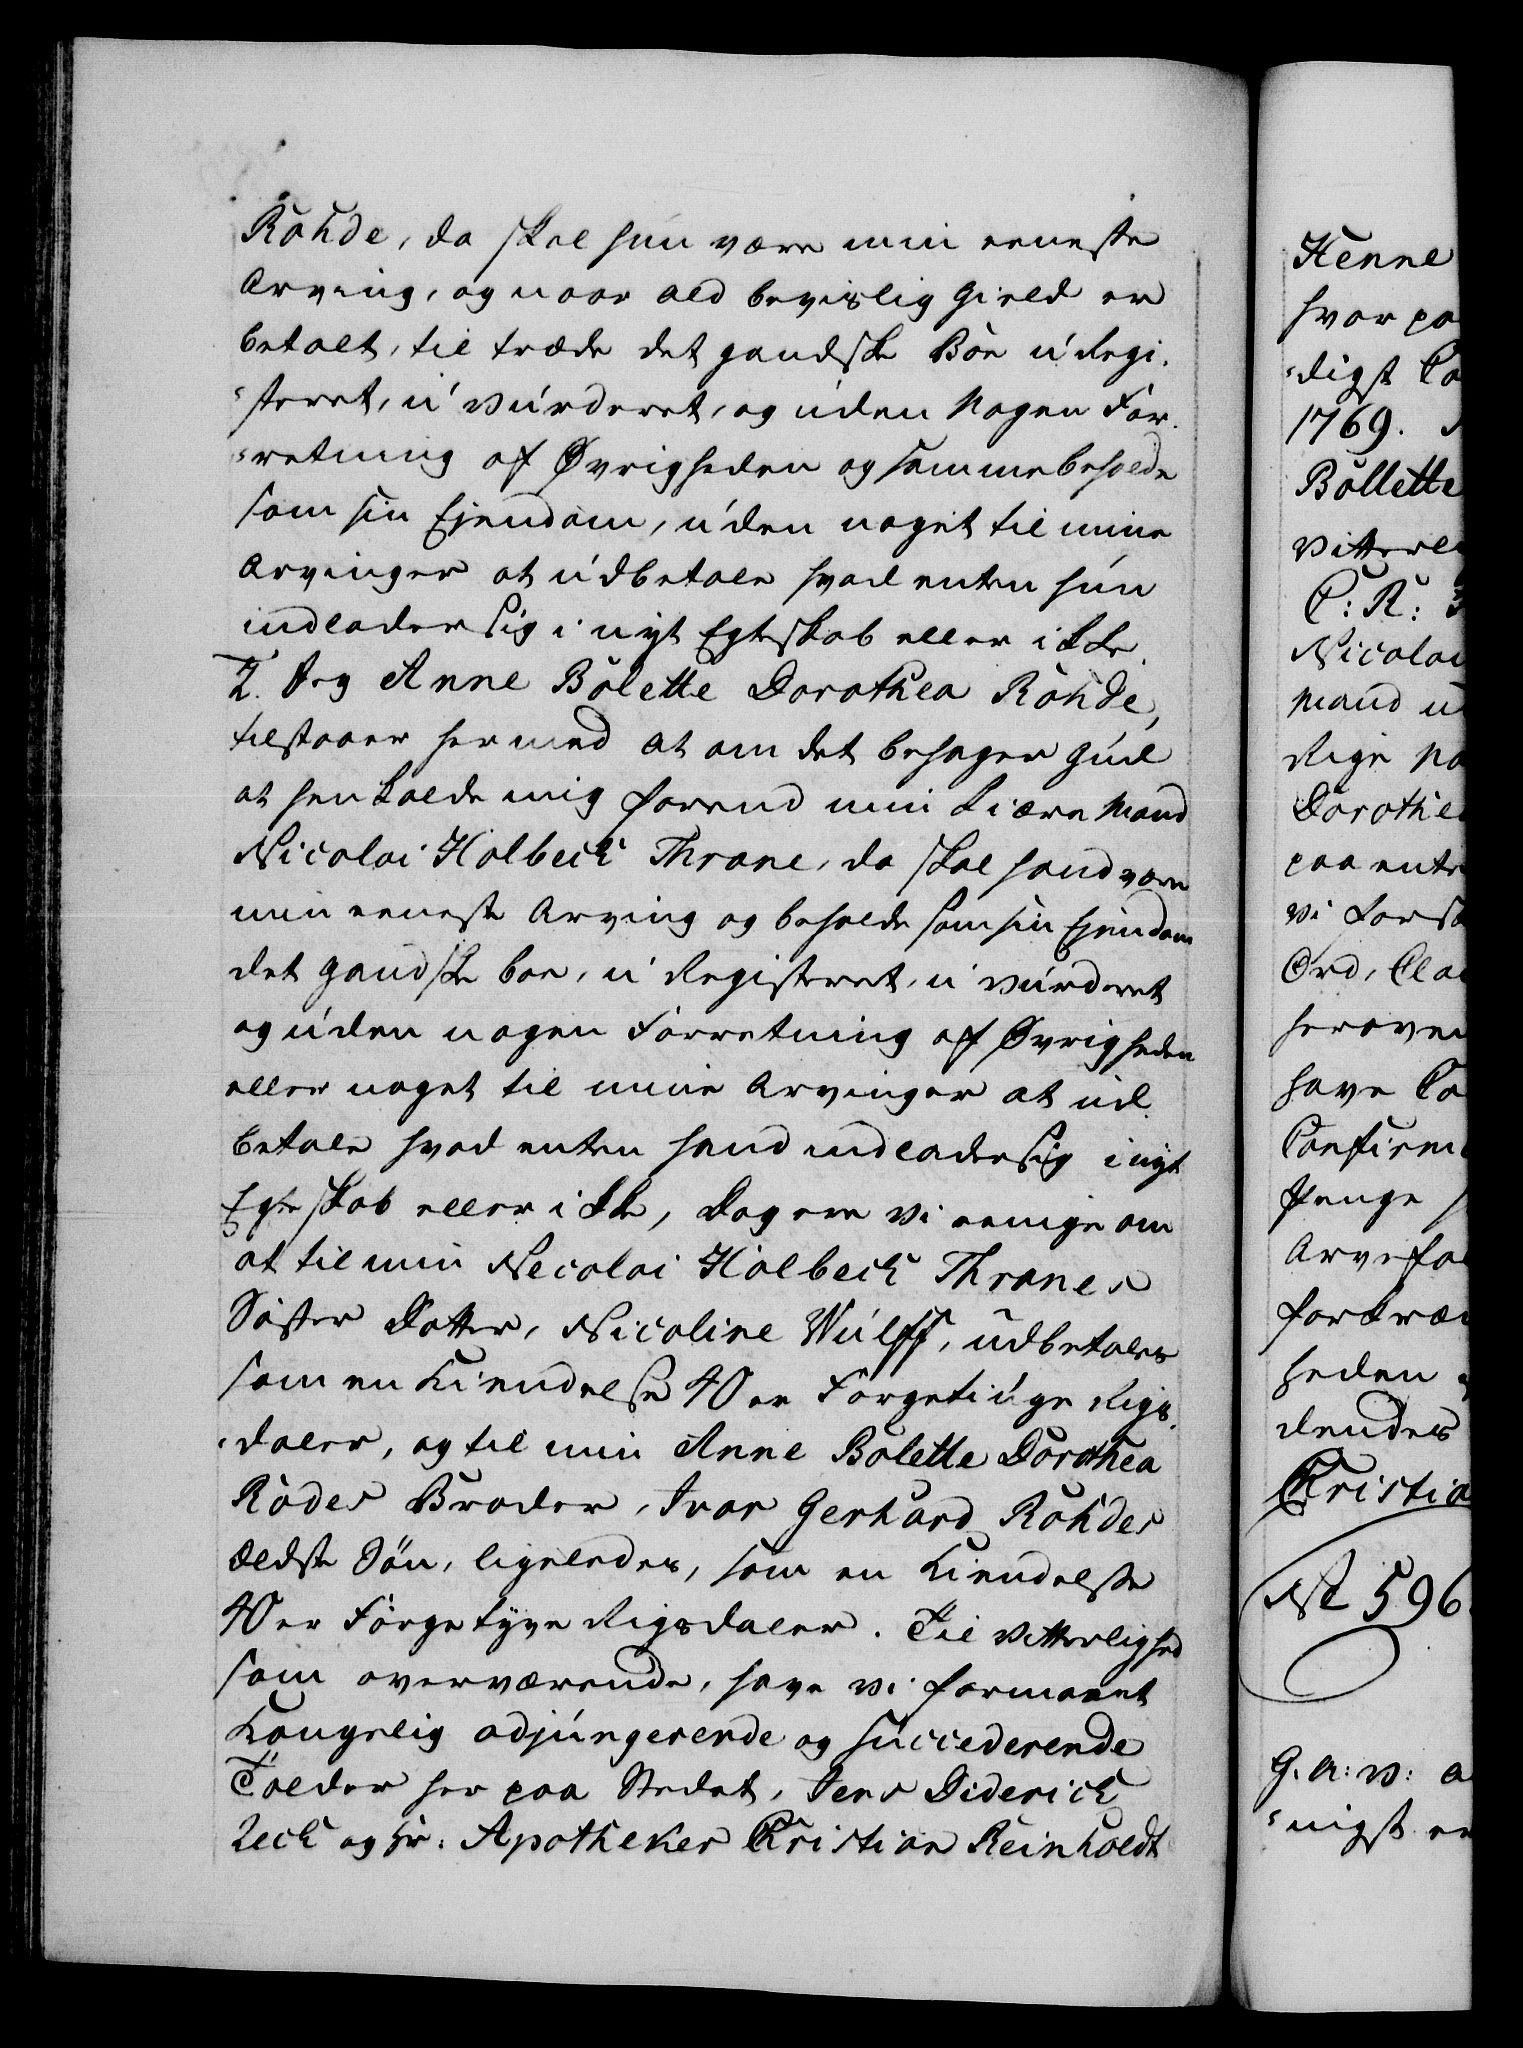 Rohde, da skal hun være min eeneste
Arving, og naar ald bevislig Gield er
betalt, til træde det gandske Boe u´ Regi,
"steret, u´ vúrderet, og uden Nogen For,
"retning af Øvrigheden og samme beholde
som sin Ejendom, uden noget til mine
Arvinger at udbetale hvad enten hun
indlader sig i nyt Egteskab eller ikke.
2. Jeg Anne Bolette Dorothea Rohde,
tilstaaer hermed at om det behager Gud
at henkalde mig forend min kiære Mand
Nicolai Holbech Thrane, da skal hand være
min eeneste Arving og beholde som sin Ejendom
det gandske boe, u´ Registeret, u´ vúrderet
og uden nogen Forretning af Øvrigheden
eller noget til mine Arvinger at ud,
betale hvad enten hand indlader sig i nyt
Egteskab eller ikke, Dog ere vi eenige om
at til min Necolai Holbech Thranes
Søster Datter, Nicoline Wulff, udbetales
som en Kiendelse 40er Førgetiúge Rigs,
"daler, og til min Anne Bolette Dorothea
Rodes Broder, Ivar Gerhard Rohdes
ældste Søn, ligeledes, som en Kiendelse
40er Førgetyve Rigsdaler. Til Vitterlighed
som overværende, have vi formaaet
Kongelig adjúngerende og súccederende
Tolder her paa Stedet, Jens Diderich
Zech og Hr: Apotheker Christian Reinholdt
Henne
hvor pa
"digst Co
1769.
Bollette
vitterl
C: R: 3
Nicolai
Mand u
Rige No
Dorothe
paa ent
vi forst
Ord, Cla
herover
have Co
Confirm
Penge
Arvefal
forkræn
heden
lendes
Christia
No 596.
G. A: V: a
"nigst er